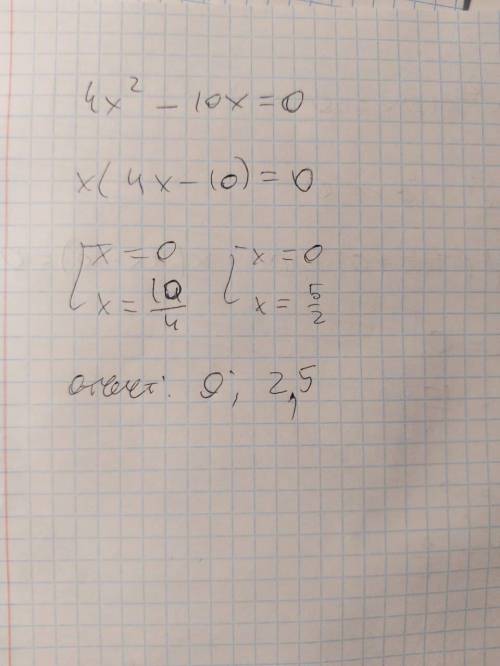 4x² - 10x = 0
x(4x - 10) = 0
[x = 0 [x = 0
x = 10/4 x = 5/2
ответ: 0; 2,5